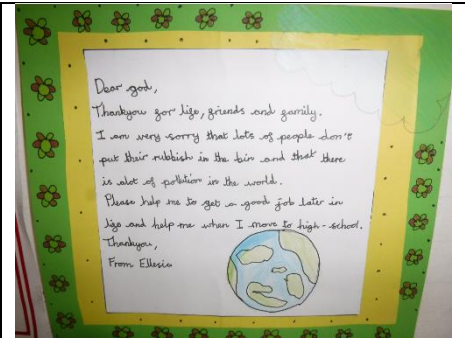 Dear god,
Thankyou for life, friends and family.
I am very sorry that lots of people don't
put their rubbish in the bin and that there
is alot of pollution in the world.
Please help me to get a good job later in
life and help me when I move to high-school.
Thankyou,
From Ellesia